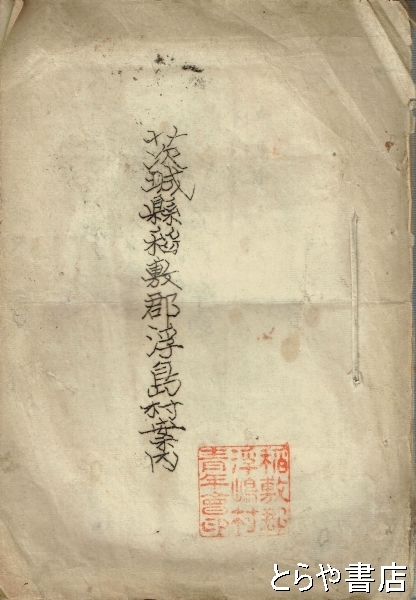 茨城縣稻敷郡浮島村案内
稲敷郡
浮嶋村
青年會印
とらや書店